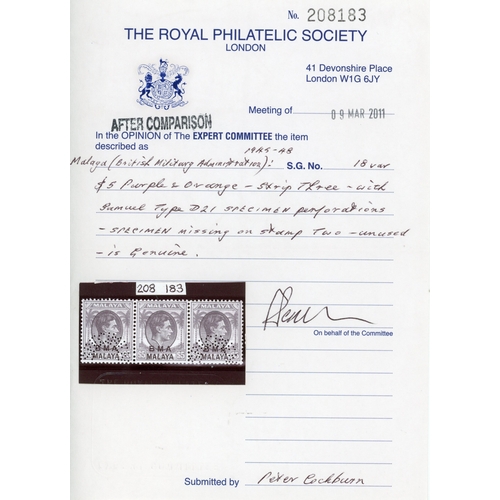 No. 208183
THE ROYAL PHILATELIC SOCIETY
LONDON
41 Devonshire Place
London W1G 6JY
Meeting of 09 MAR 2011
AFTER COMPARISON
In the OPINION of The EXPERT COMMITTEE the item
described as 1945-48
Malaya (British Military Administration): S.G. No. 18 var
$5 Purple & Orange - Strip Three - with
Samuel Type D21 SPECIMEN perforations
- SPECIMEN missing on stamp Two - unused
- is Genuine.
208 183
MALAYA MALAYA MALAYA
BMA BMA BMA
MALAYA MALAYA MALAYA
On behalf of the Committee
Submitted by Peter Cockburn